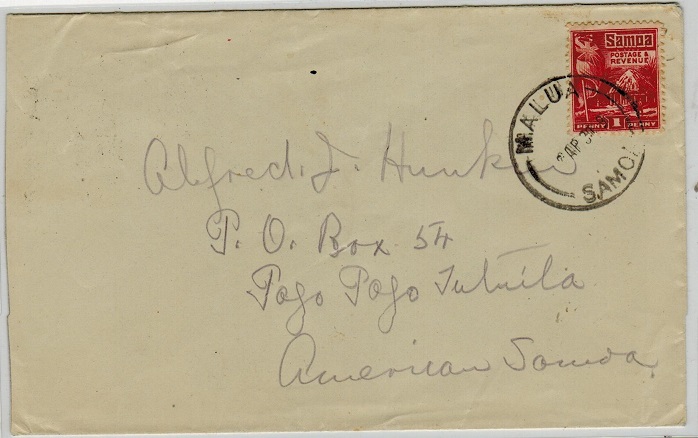 Samoa
POSTAGE &
REVENUE
PENNY 1 PENNY
MALUA
AP
SAMO
Alfred. J. Hunkin
P. O. Box 54
Pago Pago Tutuila
American Samoa.